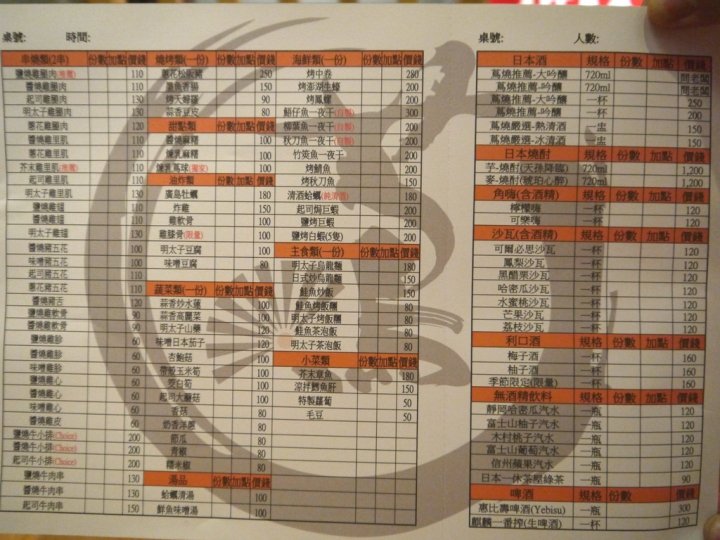 桌號: 時間:
串燒類(2串) 份數 加點 價錢
鹽燒雞腿肉(推薦) 110
醬燒雞腿肉 110
起司雞腿肉 130
明太子雞腿肉 130
蔥花雞腿肉 120
鹽燒雞里肌 110
醬燒雞里肌 110
芥末雞里肌(推薦) 110
起司雞里肌 110
明太子雞里肌 130
鹽燒雞翅
醬燒雞翅 110
明太子雞翅 130
鹽燒豬五花 100
醬燒豬五花 100
味噌豬五花 100
起司豬五花 110
蔥花豬五花 110
醬燒豬舌 120
鹽燒雞軟骨 90
醬燒雞軟骨 90
鹽燒雞胗
醬燒雞胗
味噌雞胗
鹽燒雞心 60
醬燒雞心 60
味噌雞心 60
鹽燒雞皮 60
鹽燒牛小排(Choice) 200
醬燒牛小排(Choice) 200
起司牛小排(Choice) 200
鹽燒牛肉串 130
醬燒牛肉串 130
起司牛肉串 150
燒烤類(一份) 份數 加點 價錢
蔥花松阪豬 250
墨魚香腸 150
烤天婦羅 90
蒜香豆皮 80
甜點類 份數 加點 價錢
醬燒麻糬 100
煉乳麻糬 100
煉乳蔦球(獨家) 100
油炸類 份數 加點 價錢
廣島牡蠣 180
炸雞 150
雞軟骨 100
雞膝骨(限量) 100
明太子豆腐 100
味噌豆腐 80
蔬菜類(一份) 份數 加點 價錢
蒜香炒水蓮 100
蒜香高麗菜 100
明太子山藥 120
味噌日本茄子 120
杏鮑菇 100
帶殼玉米筍 100
茭白筍 100
起司大蘑菇 100
香菇 80
奶香洋蔥 80
節瓜 80
青椒 80
糯米椒 80
湯品 份數 加點 價錢
蛤蠣清湯 100
鮮魚味噌湯 100
海鮮類(一份) 份數 加點 價錢
烤中卷 280
烤澎湖生蠔 200
烤鳳螺 200
鯖仔魚一夜干(自製) 300
柳葉魚一夜干(自製) 200
秋刀魚一夜干(自製) 200
竹筴魚一夜干 200
烤鯖魚 200
烤秋刀魚 150
清酒蛤蠣(純清酒) 200
起司焗巨蝦 200
鹽烤巨蝦 200
鹽烤白蝦(5隻) 200
主食類(一份) 份數 加點 價錢
明太子烏龍麵 180
日式炒烏龍麵 150
鮭魚炒飯 150
鮭魚烤飯糰 80
明太子烤飯糰 80
鮭魚茶泡飯 80
明太子茶泡飯 80
小菜類 份數 加點 價錢
芥末章魚 180
涼拌鱈魚肝 150
特製蘿蔔 50
毛豆 50
桌號: 人數:
日本酒 規格 份數 加點 價錢
蔦燒推薦-大吟釀 720ml 問老闆
蔦燒推薦-吟釀 720ml 問老闆
蔦燒推薦-大吟釀 一杯 250
蔦燒推薦-吟釀 一杯 200
蔦燒嚴選-熱清酒 一壺 150
蔦燒嚴選-冰清酒 一壺 150
日本燒酎 規格 份數 加點 價錢
芋-燒酎(天孫降臨) 720ml 1,200
麥-燒酎(琥珀心醇) 720ml 1,200
角嗨(含酒精) 規格 份數 加點 價錢
檸檬嗨 一杯 120
可樂嗨 一杯 120
沙瓦(含酒精) 規格 份數 加點 價錢
可爾必思沙瓦 一杯 120
鳳梨沙瓦 一杯 120
黑醋栗沙瓦 一杯 120
哈密瓜沙瓦 一杯 120
水蜜桃沙瓦 一杯 120
芒果沙瓦 一杯 120
荔枝沙瓦 一杯 120
利口酒 規格 份數 加點 價錢
梅子酒 一杯 160
柚子酒 一杯 160
季節限定(限量) 一杯 160
無酒精飲料 規格 份數 加點 價錢
靜岡哈密瓜汽水 一瓶 120
富士山柚子汽水 一瓶 120
木村桃子汽水 一瓶 120
富士山葡萄汽水 一瓶 120
信州蘋果汽水 一瓶 120
日本一休茶壓綠茶 一瓶 90
啤酒 規格 份數 價錢
惠比壽啤酒(Yebisu) 一瓶 300
麒麟一番搾(生啤酒) 一杯 120